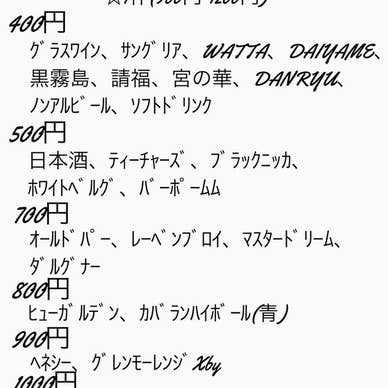 400円
ｸﾞﾗｽﾜｲﾝ、ｻﾝｸﾞﾘｱ、WATTA、DAIYAME、
黒霧島、請福、宮の華、DANRYU、
ﾉﾝｱﾙﾋﾞｰﾙ、ｿﾌﾄﾄﾞﾘﾝｸ
500円
日本酒、ﾃｨｰﾁｬｰｽﾞ、ﾌﾞﾗｯｸﾆｯｶ、
ﾎﾜｲﾄﾍﾞﾙｸﾞ、ﾊﾞｰﾎﾟｰﾑﾑ
700円
ｵｰﾙﾄﾞﾊﾟｰ、ﾚｰﾍﾞﾝﾌﾞﾛｲ、ﾏｽﾀｰﾄﾞﾘｰﾑ、
ﾀﾞﾙｸﾞﾅｰ
800円
ﾋｭｰｶﾞﾙﾃﾞﾝ、ｶﾊﾞﾗﾝﾊｲﾎﾞｰﾙ(青)
900円
ﾍﾈｼｰ、ｸﾞﾚﾝﾓｰﾚﾝｼﾞXby
1000円